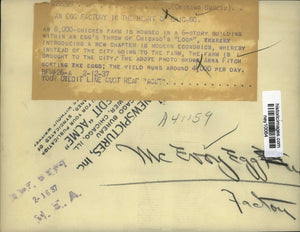 (Chicago Bureau)
AN EGG FACTORY IN THE HEART OF CHICAGO.
AN 8,000-CHICKEN FARM IS HOUSED IN A 6-STORY BUILDING
WITHIN AN EGG'S THROW OF CHICAGO'S "LOOP", THEREBY
INTRODUCING A NEW CHAPTER IN MODERN ECONOMICS, WHEREBY
INSTEAD OF THE CITY GOING TO THE FARM, THE FARM IS
BROUGHT TO THE CITY. THE ABOVE PHOTO SHOWS ANNA FITCH
SORTING THE EGGS; THE YIELD RUNS AROUND 4,000 PER DAY.
2-12-37
YOUR CREDIT LINE MUST READ "ACME".
A41159
NEWSPICTURES, Inc
"ACME"
BUREAU
CHICAGO, ILL.
Mc Evoy Egg
Factory
N. E. A.